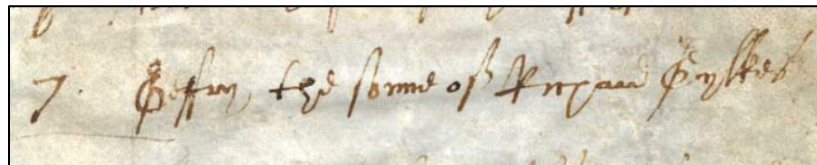 7. Geffry the sonne of Richard Gylkes